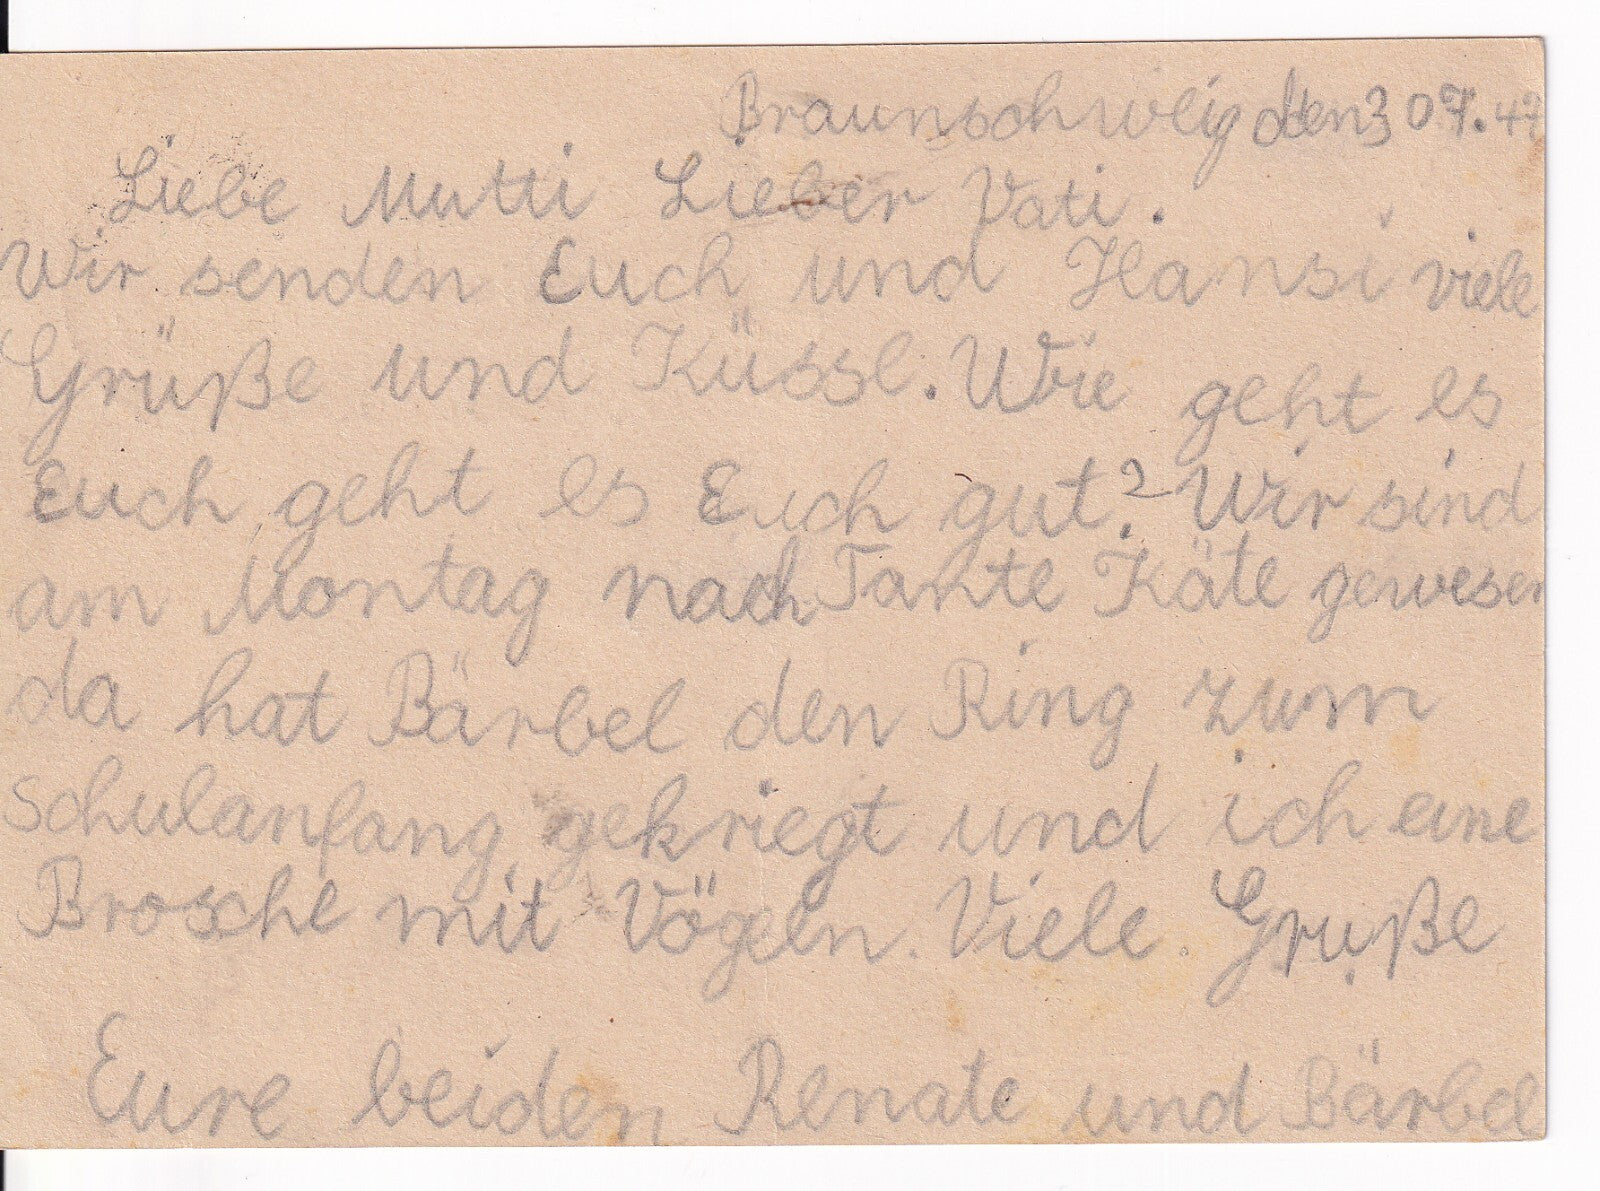 Braunschweig den 30.7.47
Liebe Mutti Lieber Vati.
Wir senden Euch und Hansi viele
Grüße und Küsse. Wie geht es
Euch geht es Euch gut? Wir sind
am Montag nach Tante Käte gewesen
da hat Bärbel den Ring zum
Schulanfang gekriegt und ich eine
Brosche mit Vögeln. Viele Gruße
Eure beiden Renate und Bärbel